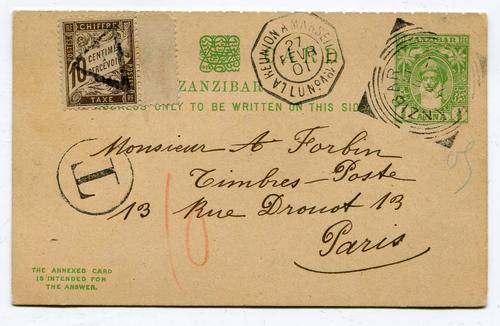 CHIFFRE
10
CENTIMES
A PERCEVOIR
TAXE
LA REUNION A MARSEILLE
27
FEVR
01
ZANZIBAR
ZANZIBAR
ANNA
ADDRESS ONLY TO BE WRITTEN ON THIS SIDE
T
Monsieur A Forbin
Timbres-Poste
13 Rue Drouot 13
Paris
10
THE ANNEXED CARD
IS INTENDED FOR
THE ANSWER.